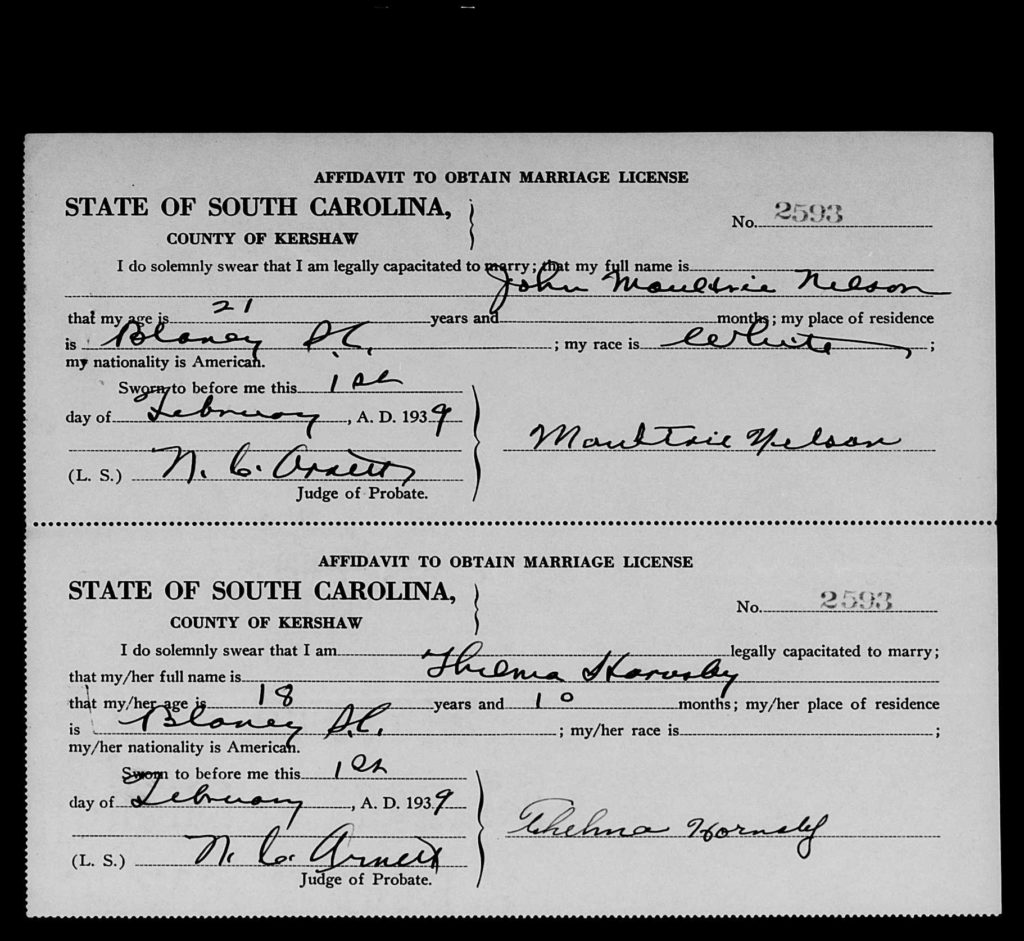 AFFIDAVIT TO OBTAIN MARRIAGE LICENSE
STATE OF SOUTH CAROLINA,
No. 2593
COUNTY OF KERSHAW
I do solemnly swear that I am legally capacitated to marry; that my full name is
John Moultrie Nelson
that my age is 21 years and months; my place of residence
is Blaney S.C. ; my race is White ;
my nationality is American.
Sworn to before me this 1st
day of February, A. D. 1939
Moultrie Nelson
(L. S.) N. C. Arnett
Judge of Probate.
AFFIDAVIT TO OBTAIN MARRIAGE LICENSE
STATE OF SOUTH CAROLINA,
No. 2593
COUNTY OF KERSHAW
I do solemnly swear that I am legally capacitated to marry;
that my/her full name is Thelma Hornsby
that my/her age is 18 years and 10 months; my/her place of residence
is Blaney S.C. ; my/her race is ;
my/her nationality is American.
Sworn to before me this 1st
day of February, A. D. 1939
Thelma Hornsby
(L. S.) N. C. Arnett
Judge of Probate.